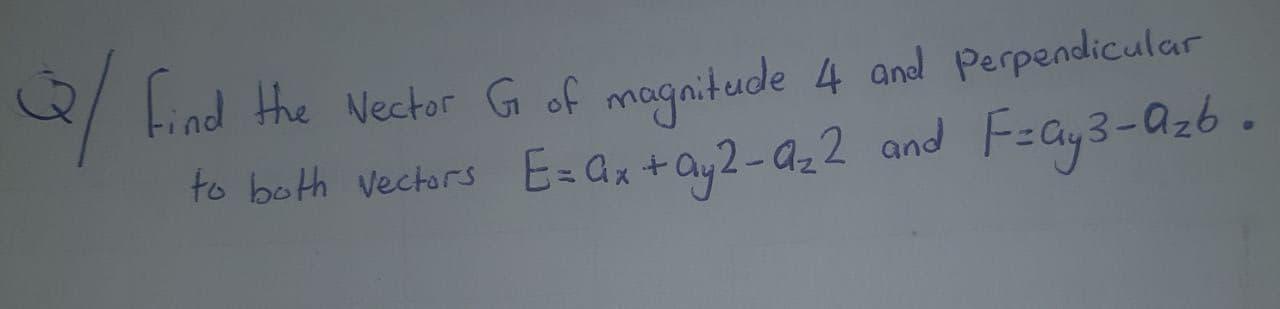 Q/ Find the Vector G of magnitude 4 and perpendicular
to both vectors E=ax+ay2-az2 and F=ay3-az6.